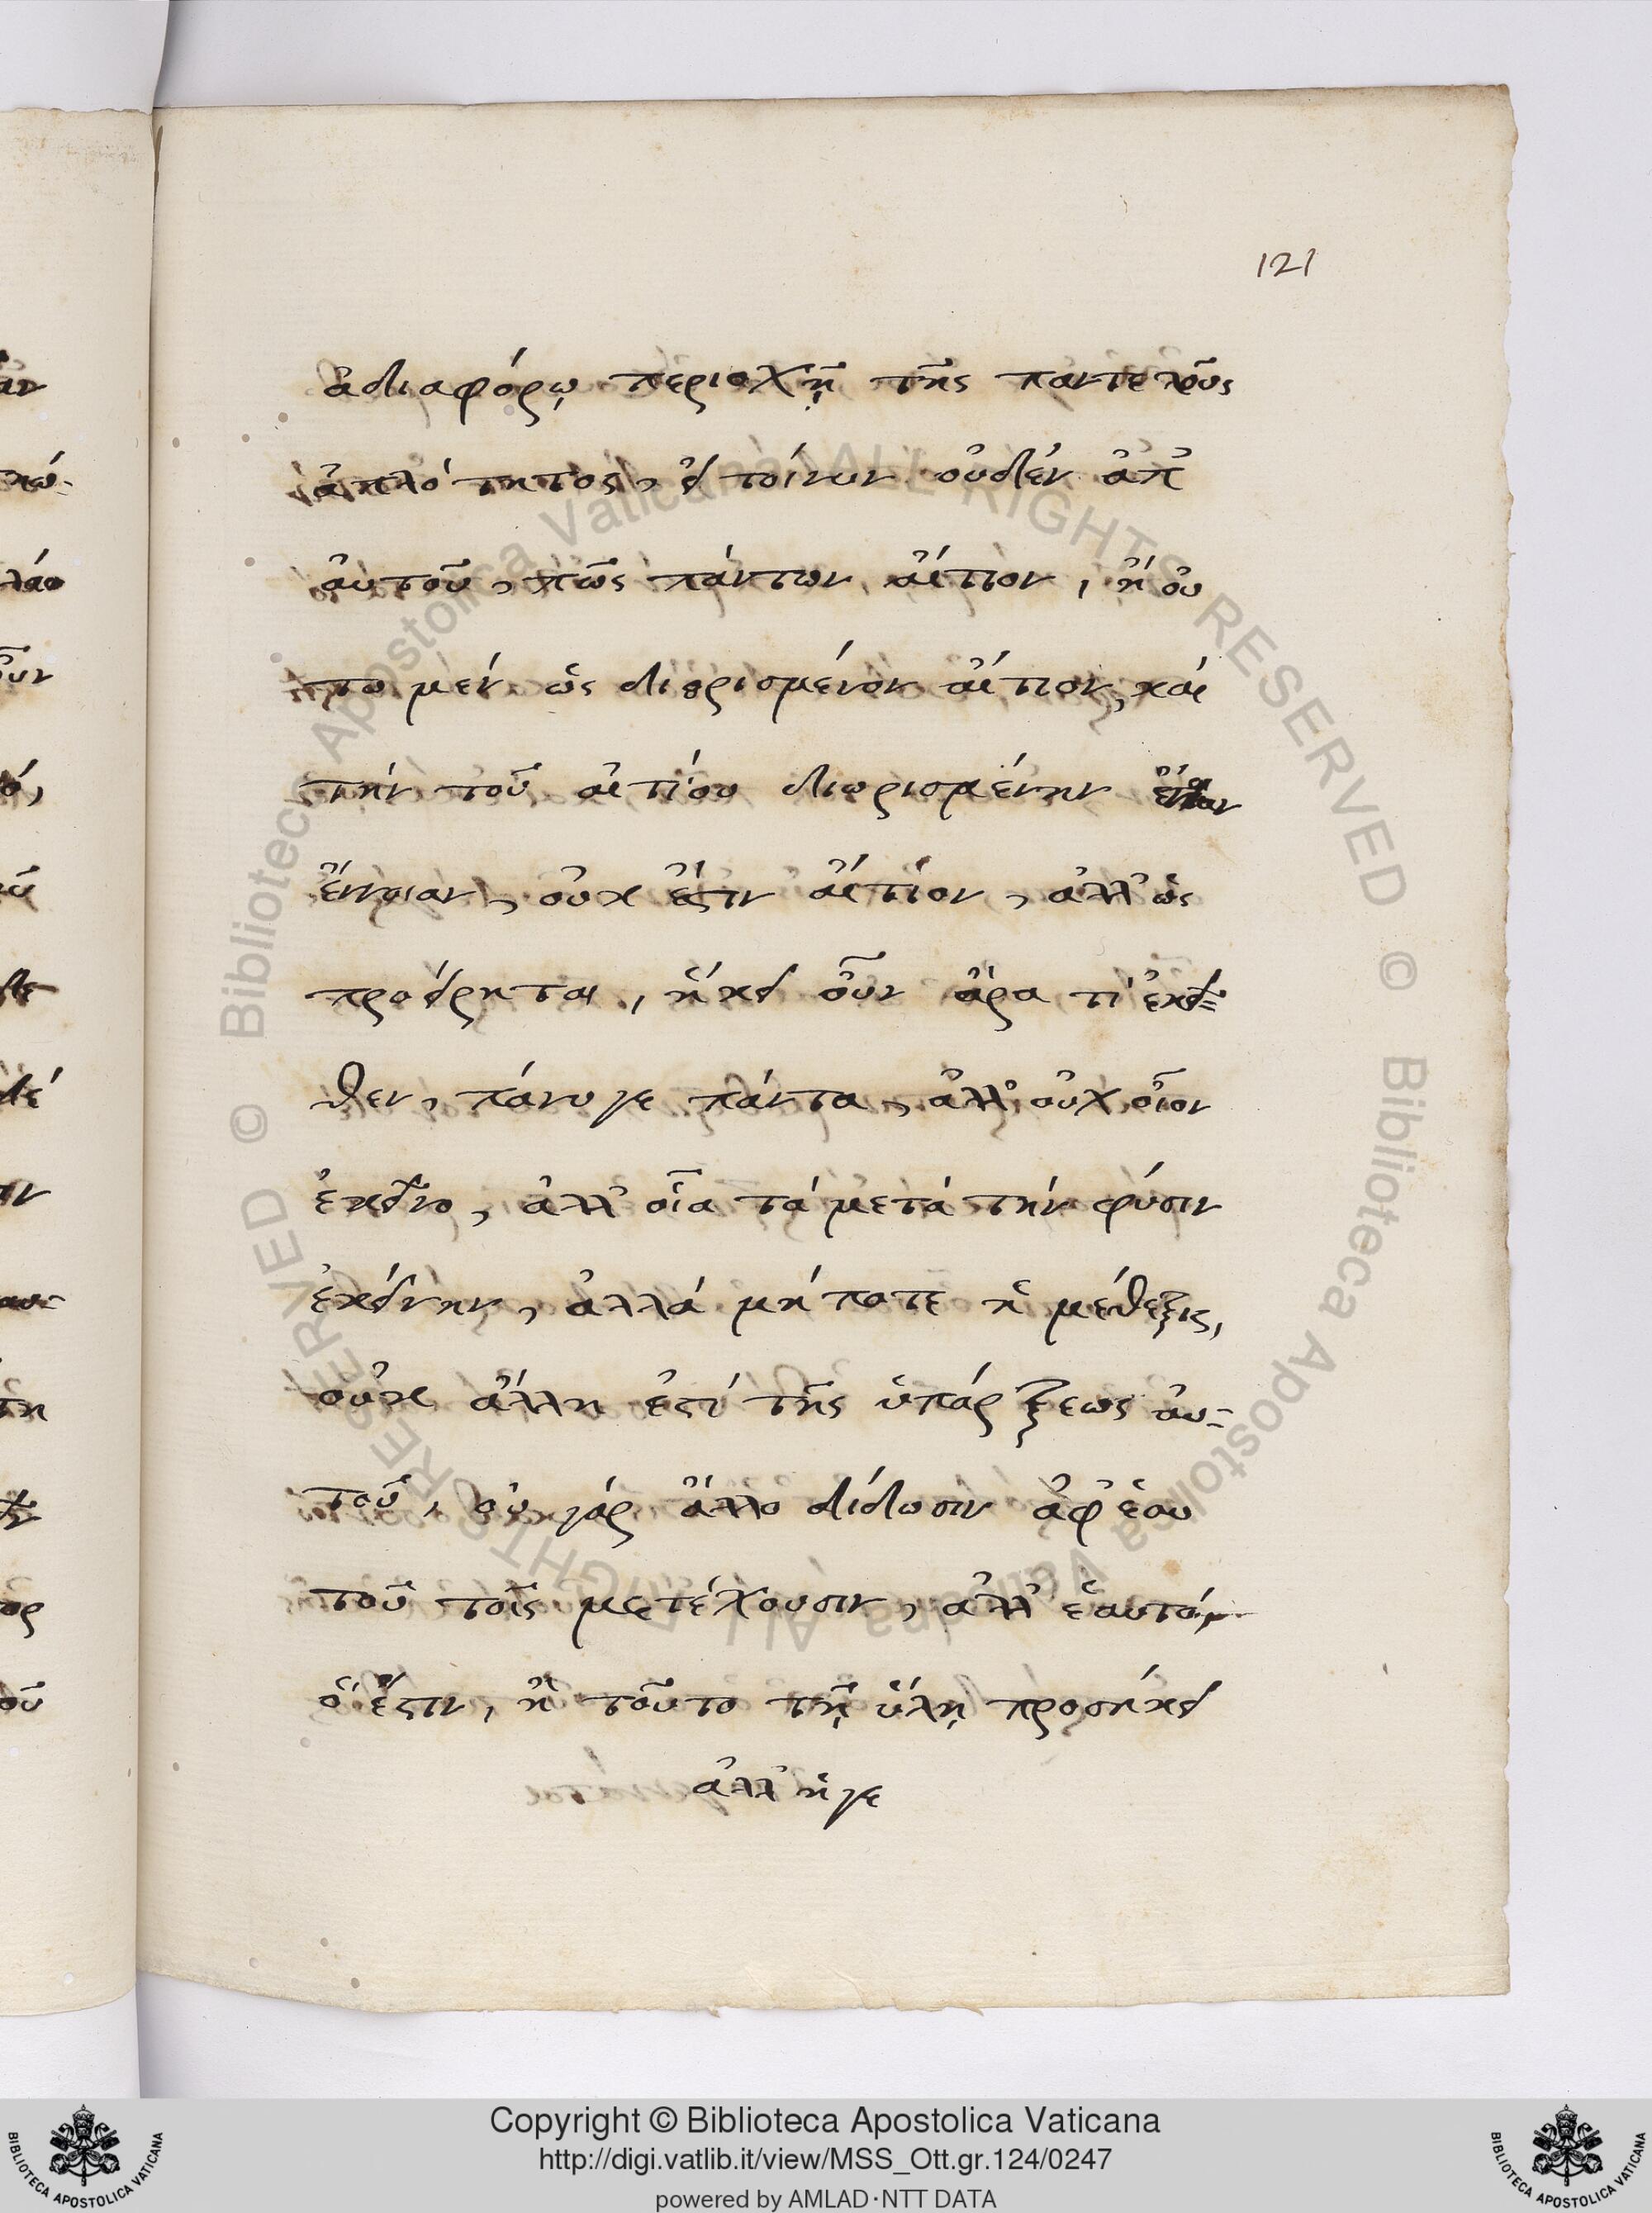 121
ἀδιαφόρῳ περιοχῇ τῆς παντελοῦς
ἁπλότητος, εἰ τοίνυν οὐδὲν ἀπ᾽
αὐτοῦ, πῶς πάντων αἴτιον, ἢ οὐ
τὸ μὲν ὡς διωρισμένον αἴτιον, καὶ
τὴν τοῦ αἰτίου διωρισμένην
ἔννοιαν, οὐκ ἔστιν αἴτιον, ἀλλ᾽ ὡς
προείρηται, ἥκει οὖν ἄρα τὶ ἐκεῖ=
θεν, πάνυ γε πάντα, ἀλλ᾽ οὐχ οἷον
ἐκεῖνο, ἀλλ᾽ οἷα τὰ μετὰ τὴν φύσιν
ἐκείνην, ἀλλὰ μήποτε ἡ μέθεξις,
οὐκ ἄλλη ἐστὶ τῆς ὑπάρξεως αὐ=
τοῦ, οὐ γὰρ ἄλλο δίδωσιν ἀφ᾽ ἑαυ
τοῦ τοῖς μετέχουσιν, ἀλλ᾽ ἑαυτὸ
ὅ ἐστιν, ἢ τοῦτο τῇ ὕλῃ προσήκει
ἀλλ᾽ ἥγε
Copyright © Biblioteca Apostolica Vaticana
http://digi.vatlib.it/view/MSS_Ott.gr.124/0247
powered by AMLAD·NTT DATA
BIBLIOTECA APOSTOLICA VATICANA
BIBLIOTECA APOSTOLICA VATICANA
© Biblioteca Apostolica Vaticana ALL RIGHTS RESERVED © Biblioteca Apostolica Vaticana ALL RIGHTS RESERVED